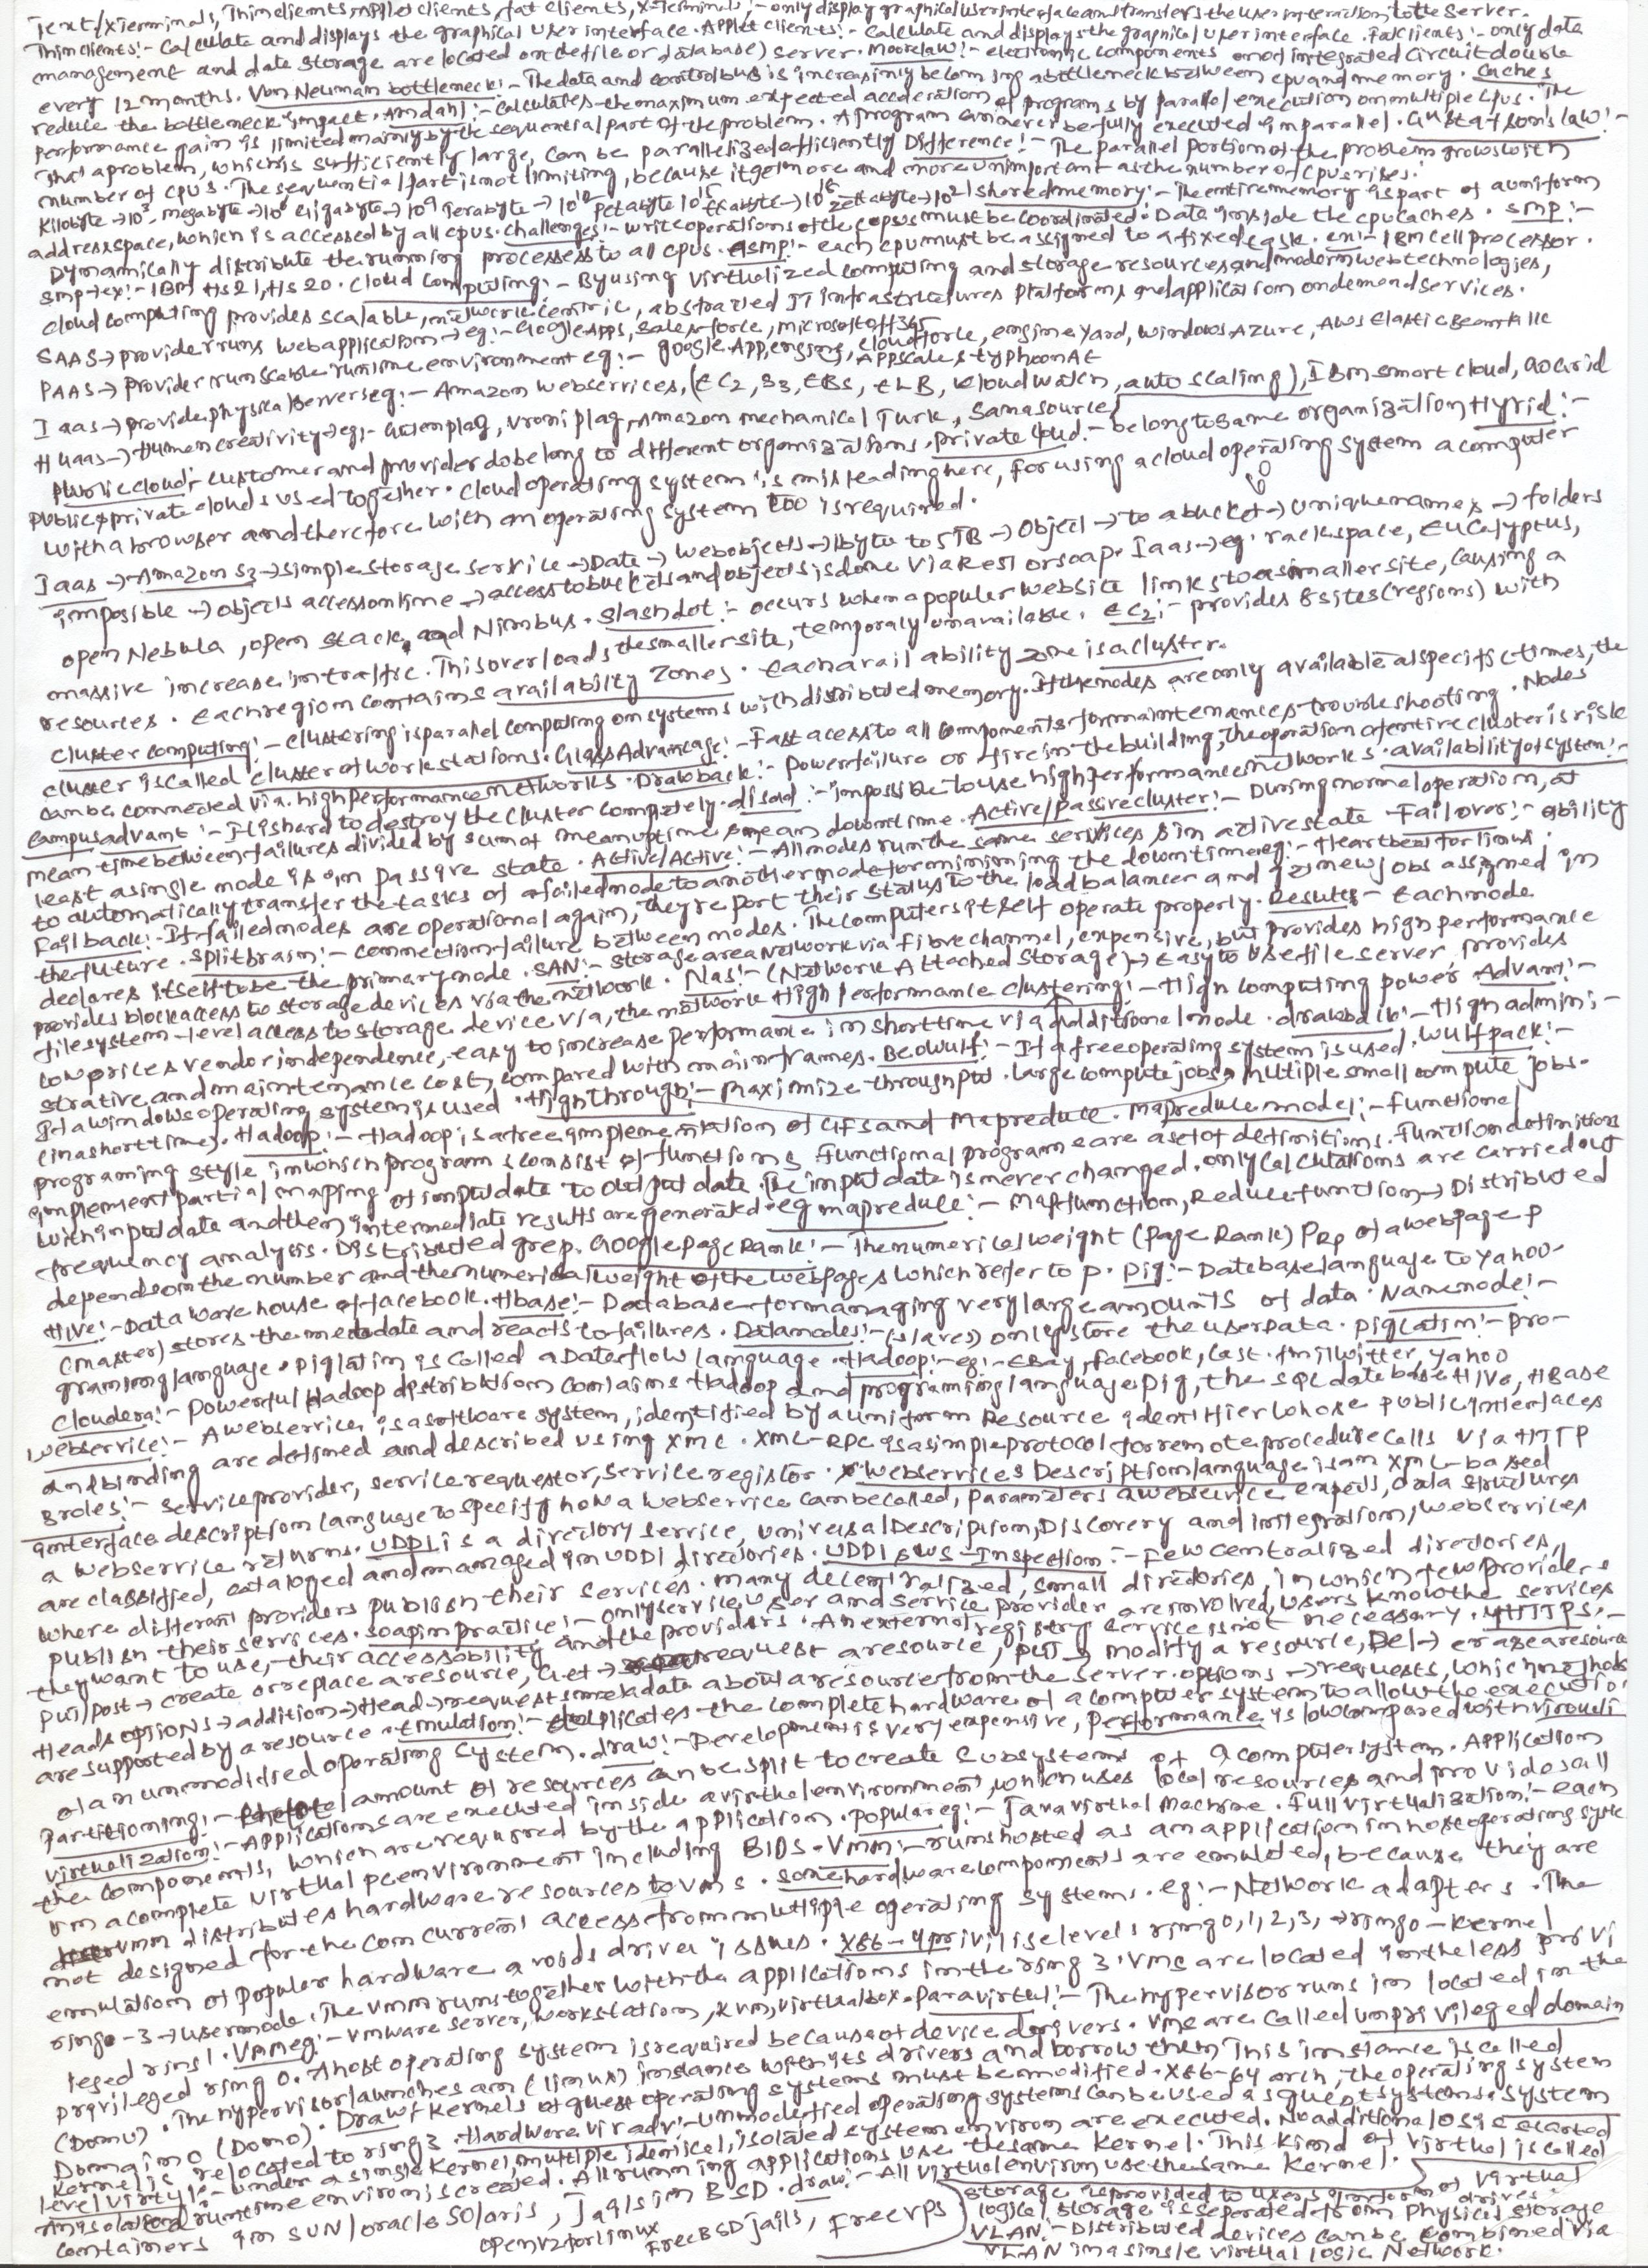 Text/xTerminals, Thinclients, Applet clients, fat clients, X-Terminals :- only display graphical user interface and transfers the user interaction to the server.
Thin clients :- Calculate and displays the graphical user interface. Applet clients :- Calculate and displays the graphical user interface. Fatclients :- only data
management and data storage are located on the file or database) server. Moorelaw :- electronic components and integrated Circuit double
every 12 months. Von Neuman bottleneck :- The data and controlbus is increasinly becoming a bottleneck between cpu and memory. Caches
reduce the bottleneck impact. Amdahl :- Calculates the maximum expected acceleration of programs by parallel execution on multiple cpus. The
performance gain is limited mainly by the sequential part of the problem. A program can never be fully executed in parallel. Gustafson's law :-
That a problem, which is sufficiently large, can be parallelized efficiently Difference :- The parallel portion of the problem grows with
number of cpus. The sequential part is not limiting, because it get more and more unimportant as the number of cpus rises.
Kilobyte → 10^3, megabyte → 10^6 Gigabyte → 10^9 Terabyte → 10^12 Petabyte 10^15 Exabyte → 10^18 zettabyte → 10^21 shared memory :- The entire memory is part of a uniform
address space, which is accessed by all cpus. Challenges :- write operations of the cpus must be coordinated. Data inside the cpu caches. SMP :-
Dynamically distribute the running processes to all cpus. Asmp :- each cpu must be assigned to a fixed task. ex :- IBM cell processor.
smp → ex :- IBM HS21, HS20. Cloud computing :- By using virtualized computing and storage resources and modern web technologies,
cloud computing provides scalable, network centric, abstracted IT infrastructures platforms and application on demand services.
SAAS → provider runs web application → eg :- Google Apps, Salesforce, microsoft off 365
PAAS → Provider run scable runtime environment eg :- google App, engine, cloudforce, engine Yard, Windows Azure, AWS Elastic Beanstalk
Appscale & typhoonAt
Iaas → provide physical servers eg :- Amazon webservices, (EC2, S3, EBS, ELB, kloud watch, auto scaling), IBM smart cloud, Gogrid
Huaas → Human creativity → eg :- Guttenplag, Vroniplag, Amazon mechanical Turk, Samasource
Public cloud :- customer and provider do belong to different organizations. private cloud :- belong to same organization Hyrid :-
Public & private clouds used together. Cloud operating system is misleading here, for using a cloud operating system a computer
with a browser and therefore with an operating system too is required.
Iaas → Amazon S3 → simple storage service → Data → web objects → 1byte to 5TB → Object → to a bucket → Unique names → folders
impossible → objects access on time → access to buckets and objects is done via REST or soap. Iaas → eg :- rackspace, Eucalyptus,
open Nebula, open stack, and Nimbus. Slashdot :- occurs when a populer website links to a smaller site, causing a
massive increase in traffic. This overloads the smaller site, temporaly unavailable. EC2 :- provides 8 sites (regions) with
resources. Each region contains availability zones. Each availability zone is a cluster.
Cluster computing :- clustering is parallel computing on systems with distributed memory. If the nodes are only available at specific times, the
cluster is called cluster of workstations. Glass Advantage :- Fast acess to all components for maintenances troubleshooting. Nodes
can be connected via. high performance networks. Drawback :- Power failure or fire in the building, the operation of entire cluster is risk
Campus advant :- It is hard to destroy the cluster completely. disad :- impossible to use high performance networks. availability of system :-
mean time between failures divided by sum of mean uptime, & mean downtime. Active/passive cluster :- During normal operation, at
least a single node is in passive state. Active/Active :- All nodes run the same services & in active state Failover :- ability
to automatically transfer the tasks of a failed node to another node for minimising the downtime eg :- Heartbeat for linux.
Failback :- If failed nodes are operational again, they report their status to the load balancer and get new jobs assigned in
the future. Split brain :- connection failure between nodes. The computers itself operate properly. Results - Each node
declares itself to be the primary node. SAN :- Storage area network via Fibre channel, expensive, but provides high performance
provides block access to storage devices via the network. Nas :- (Network Attached storage) → Easy to use file server, provides
filesystem - level access to storage device via, the network High performance clustering :- High computing power Advan :-
low prices vendor independence, easy to increase performance in short time via additional node. drawback :- High admini-
strative and maintenance cost, compared with mainframes. Beowulf :- If a free operating system is used. Wulfpack :-
If a windows operating system is used. High through :- Maximize throughput. Large compute jobs, multiple small compute jobs.
(in a short time). Hadoop :- Hadoop is a free implementation of GFS and Mapreduce. Mapreduce model :- functional
programing style in which program s consist of functions. Functional program are a set of definitions. Function definitions
implement partial maping of input data to output data. The input data is never changed. only calculations are carried out
with input data and then intermediate results are generated. eg mapreduce :- Map function, Reduce function → Distributed
frequency analysis. Distributed grep. Google Page Rank :- The numerical weight (Page Rank) PRp of a webpage P
depends on the number and the numerical weight of the webpages which refer to p. Pig :- Database language to yahoo.
Hive :- Data warehouse of facebook. Hbase :- Database for managing very large amounts of data. Namenode :-
(master) stores the metadata and reacts to failures. Datanodes :- (slaves) only store the user data. piglatin :- pro-
graming language. piglatin is called a Dataflow language. Hadoop :- eg :- EBay, facebook, last.fm, twitter, yahoo
Cloudera :- Powerful Hadoop distribution contains Hadoop and programing language pig, the sql database Hive, HBase
Webservice :- A webservice, is a software system, identified by a uniform Resource identifier whose public interfaces
and binding are defined and described using XML. XML-RPC is a simple protocol for remote procedure calls via HTTP
3roles :- service provider, service requestor, service registor. Webservices Description language is an XML-based
interface description language to specify how a webservice can be called, parameters a webservice expects, data structures
a webservice returns. UDDI is a directory service, Universal Description, Discovery and integration, webservices
are classified, cataloged and managed in UDDI directories. UDDI & WS - Inspection :- Few centralized directories,
where different providers publish their services. many decentralized, small directories, in which few providers
publish their services. Soap in practice :- only service user and service provider are involved, users know the services
they want to use, their accessability and the providers. An external registry service is not necessary. HTTPS :-
Put/post → create or replace a resource, Get → request a resource, put → modify a resource, Del → eraze a resource
Heads options → addition → Head → requests metadata about a resource from the server. options → requests, which methods
are supported by a resource. Emulation :- duplicates the complete hardware of a computer system to allow the executio
of an unmodidied operating system. draw :- Development is very expensive, performance is low compared with virtuali
Partitioning :- total amount of resources can be split to create subsystems of a computer system. Application
virtualization :- Applications are executed inside a virthal environment, which uses local resources and provides all
the components, which are required by the application. Popular eg :- Java virthal Machine. Full virtualization :- each
vm a complete virtual pc environment including BIOS. Vmm :- runs hosted as an application in host operating syste
vmm distributes hardware resources to VMs. some hardware components are emulated, because they are
not designed for the concurrent access from multiple operating systems. eg :- Network adapters. The
emulation of popular hardware avoids driver issues. X86 - 4 priviliselevels ring 0, 1, 2, 3, → ring 0 - kernel
ring 0 - 3 → usermode. The vmm runs together with the applications in the ring 3. VMs are located in the less privi
leged ring 1. VMM eg :- vmware server, workstation, kvm, virtualbox. Paravirtual :- The hypervisor runs in located in the
privileged ring 0. A host operating system is required because of device drivers. Vms are called unprivileged domain
(DomU). The hypervisor launches an (linux) instance with its drivers and borrow them This instance is called
Domain 0 (Dom0). Draw & Kernels of guest operating systems must be modified. X86-64 arch, the operating system
kernel is relocated to ring 3. Hardware vir adv :- Unmodefied operating systems can be used as guest systems. System
level virty :- under a single kernel, multiple idenical, isolated system environ are executed. No additional os is started
An isolated runtime environ is created. All running applications use the same kernel. This kind of virthal is called
Containers in SUN/oracle Solaris, Jails in BSD. draw :- All virthal environ use the same kernel.
openvz for linux FreeBSD jails, Free VPS
storage is provided to users in form of virthal drives.
logical storage is separated from physical storage
VLAN :- Distributed devices can be combined via
VLAN in a single virtual logic Network.